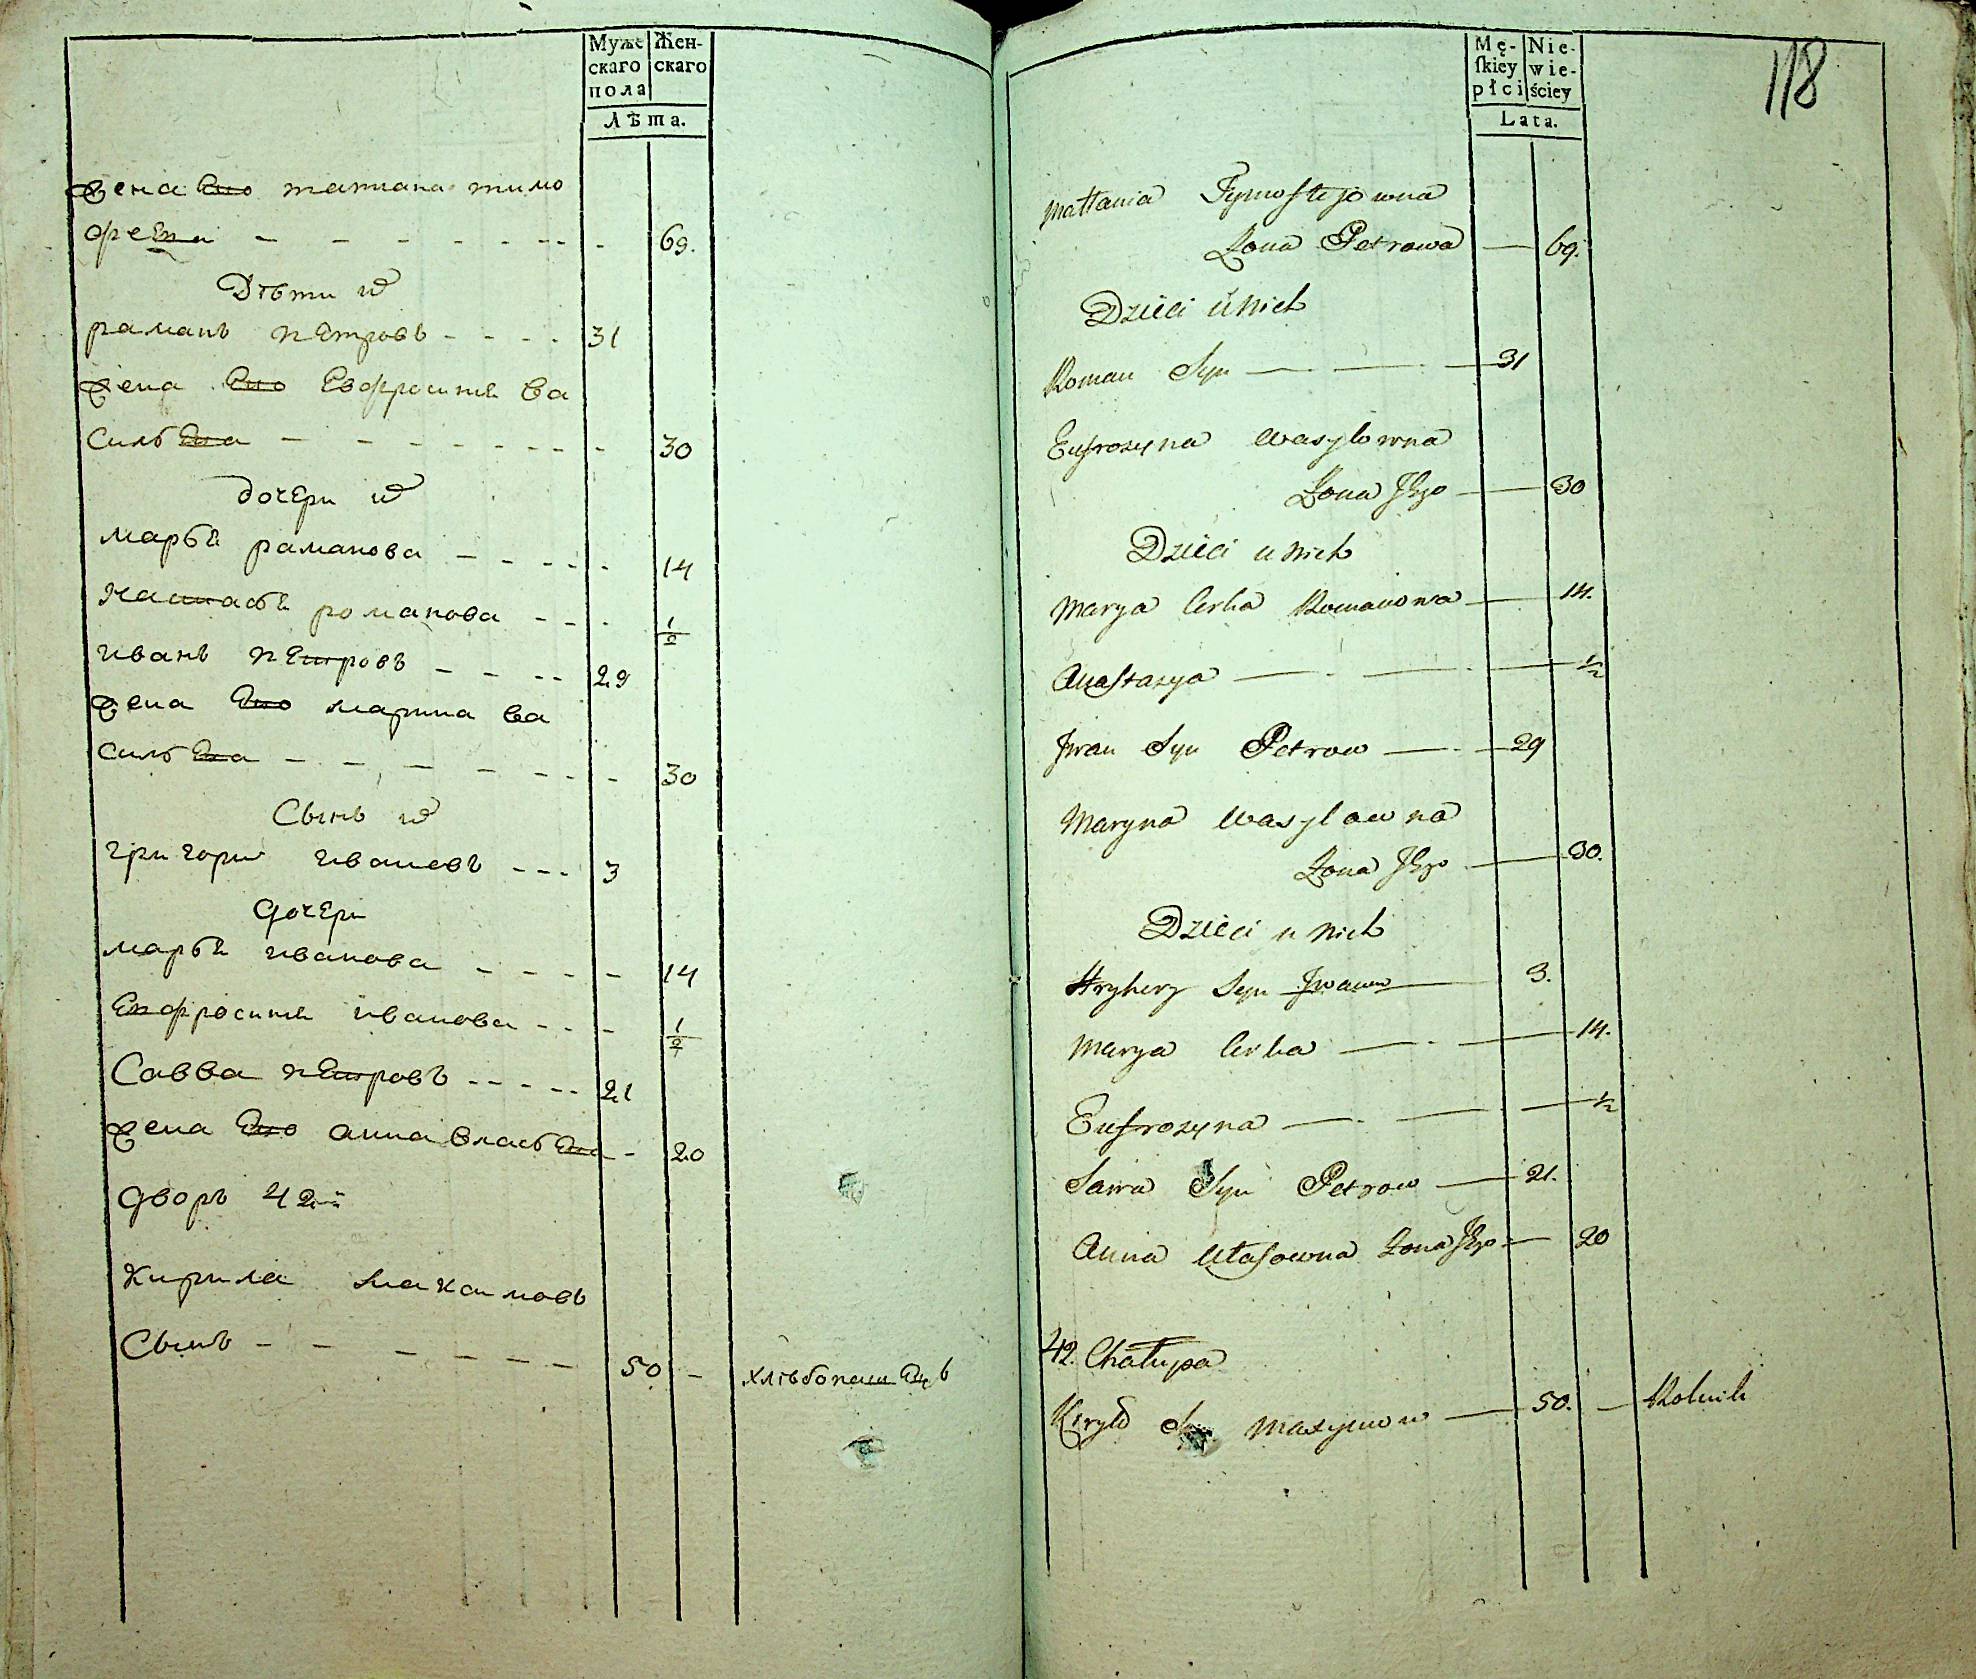 Муже Жен-
скаго скаго
пола
Лѣта.
жена ево татиана тимо
феева - - - - - - - 69.
Дѣти их
раманъ петровъ - - - - 31
жена ево Евфросинія ва
сильева - - - - - - - - 30
дочери их
марья раманова - - - - - 14
настасья романова - - - 1/2
иванъ петровъ - - - - 29
жена ево марина ва
сильева - - - - - - - 30
Сынъ их
григори ивановъ - - - 3
дочери
марья иванова - - - - - 14
Ефросинія иванова - - - 1/2
Савва петровъ - - - - - 21
жена ево анна власьева - 20
дворъ 42й
Кирила Макс­имовъ
Сынъ - - - - - - 50 - хлѣбопашецъ
118
Mę- Nie-
ſkiey wie-
płci ściey
Lata.
Mattania Tymofiejowna
Żona Petrowa — 69.
Dzieci u Nich
Roman Syn — — — 31
Eufrozyna Wasylowna
Żona Jego — 30
Dzieci u Nich
Marya Corka Romanowa — 14.
Anastazya — - — - — 1/2
Jwan Syn Petrow — - — 29
Maryna Wasylawna
Żona Jego — 30.
Dzieci u Nich
Hryhory Syn Jwanow — 3.
Marya Corka — - — 14.
Eufrozyna — - — - — 1/2
Sawa Syn Petrow — 21.
Anna Własowna Żona Jego — 20
42. Chałupa
Kiryło Maxymow — 50. — Rolnik